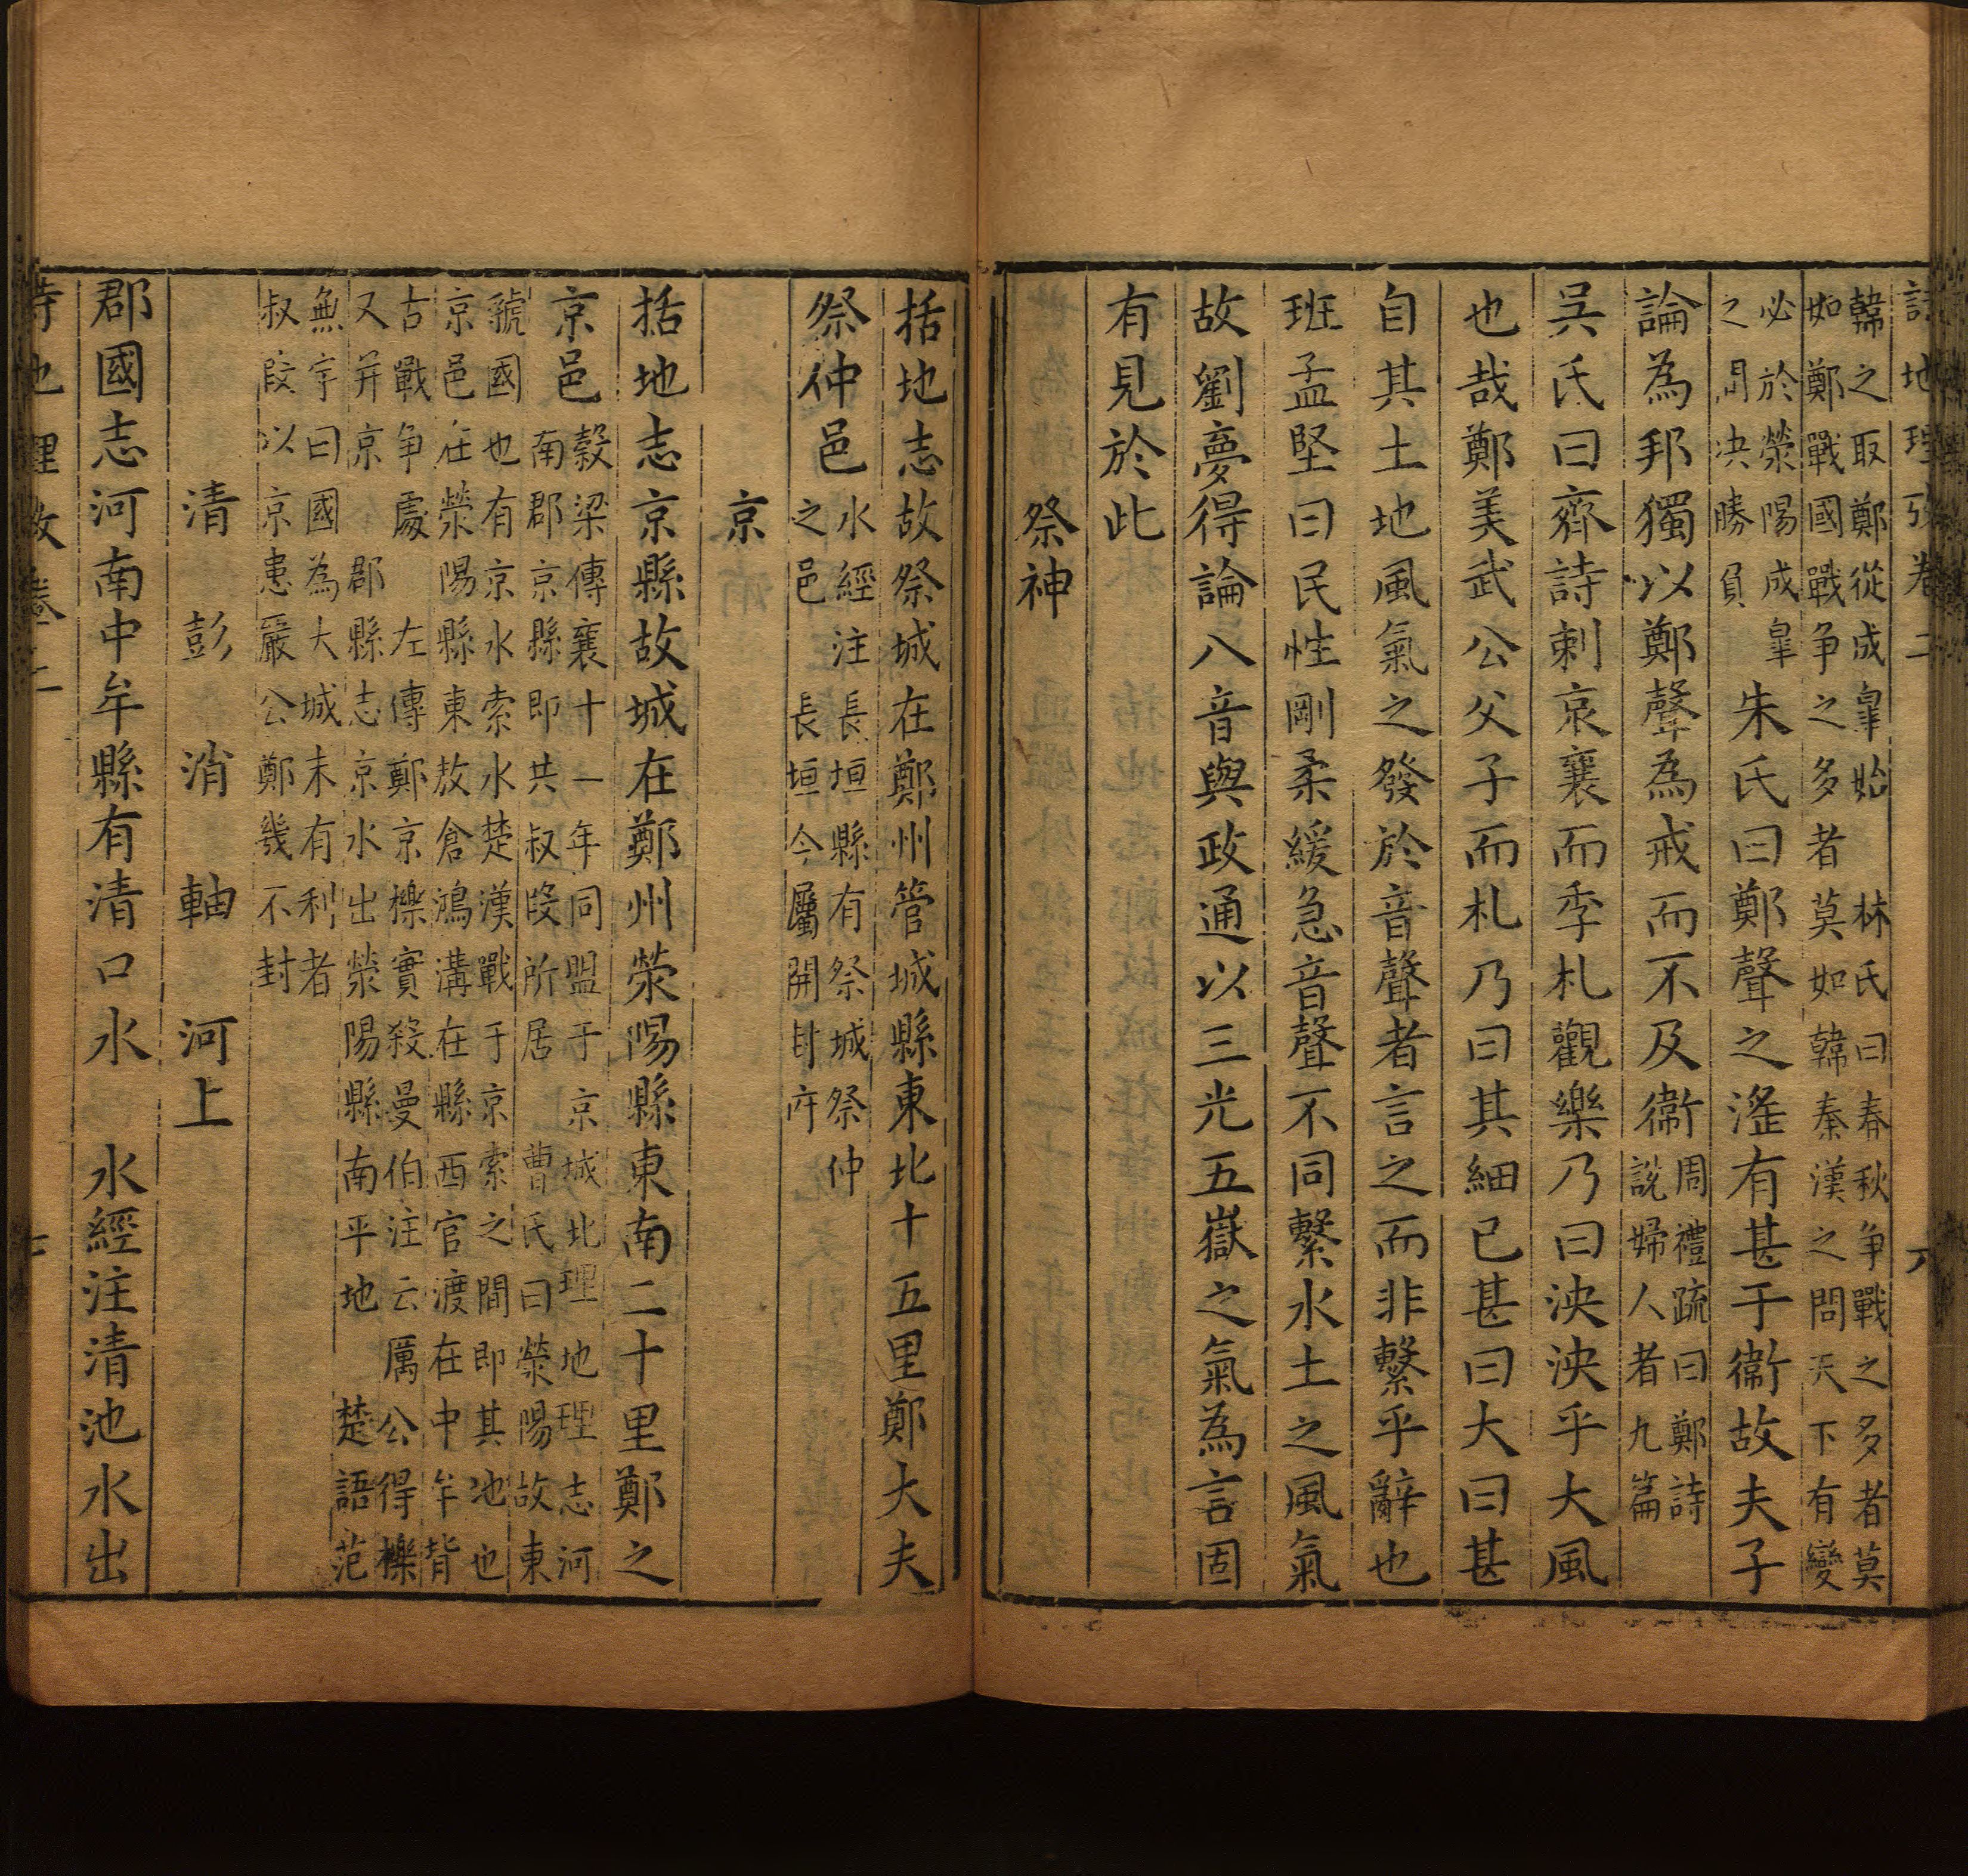 詩地理攷卷二 六
韓之取鄭從成臯始 林氏曰春秋争戰之多者莫
如鄭戰國戰争之多者莫如韓秦漢之問天下有變
必於滎陽成臯之間决勝負 朱氏曰鄭聲之滛有甚于衞故夫子
論為邦獨以鄭聲為戒而不及衞周禮疏曰鄭詩說婦人者九篇
吳氏曰齊詩刺哀襄而季札觀樂乃曰泱泱乎大風
也哉鄭美武公父子而札乃曰其細已甚曰大曰甚
自其土地風氣之發於音聲者言之而非繫乎辭也
班孟堅曰民性剛柔緩急音聲不同繫水土之風氣
故劉夢得論八音與政通以三光五嶽之氣為言固
有見於此
祭神
括地志故祭城在鄭州管城縣東北十五里鄭大夫
祭仲邑水經注長垣縣有祭城祭仲之邑 長垣今屬開封府
京
括地志京縣故城在鄭州滎陽縣東南二十里鄭之
京邑穀梁傳襄十一年同盟于京城北理地理志河南郡京縣即共叔段所居 曹氏曰滎陽故東
虢國也有京水索水楚漢戰于京索之間即其地也
京邑在滎陽縣東敖倉鴻溝在縣西官渡在中牟背
古戰争處 左傳鄭京櫟實殺曼伯注云厲公得櫟
又并京 郡縣志京水出滎陽縣南平地 楚語范
無宇曰國為大城未有利者
叔段以京患嚴公鄭幾不封
清 彭 消 軸 河上
郡國志河南中牟縣有清口水 水經注清池水出
詩地理攷卷二 七